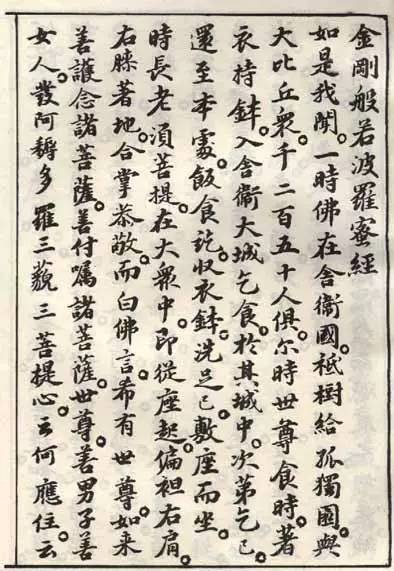 金剛般若波羅蜜經
如是我聞。一時佛在舍衞國。祗樹給孤獨園。與
大比丘衆。千二百五十人俱。尔時世尊食時。著
衣持鉢。入舍衞大城乞食。於其城中。次第乞已。
還至本處。飯食訖。收衣鉢。洗足已。敷座而坐。
時長老湏菩提。在大衆中。即從座起。偏袒右肩。
右膝著地。合掌恭敬。而白佛言。希有世尊。如来
善護念諸菩薩。善付囑諸菩薩。世尊。善男子善
女人。發阿耨多羅三藐三菩提心。云何應住。云